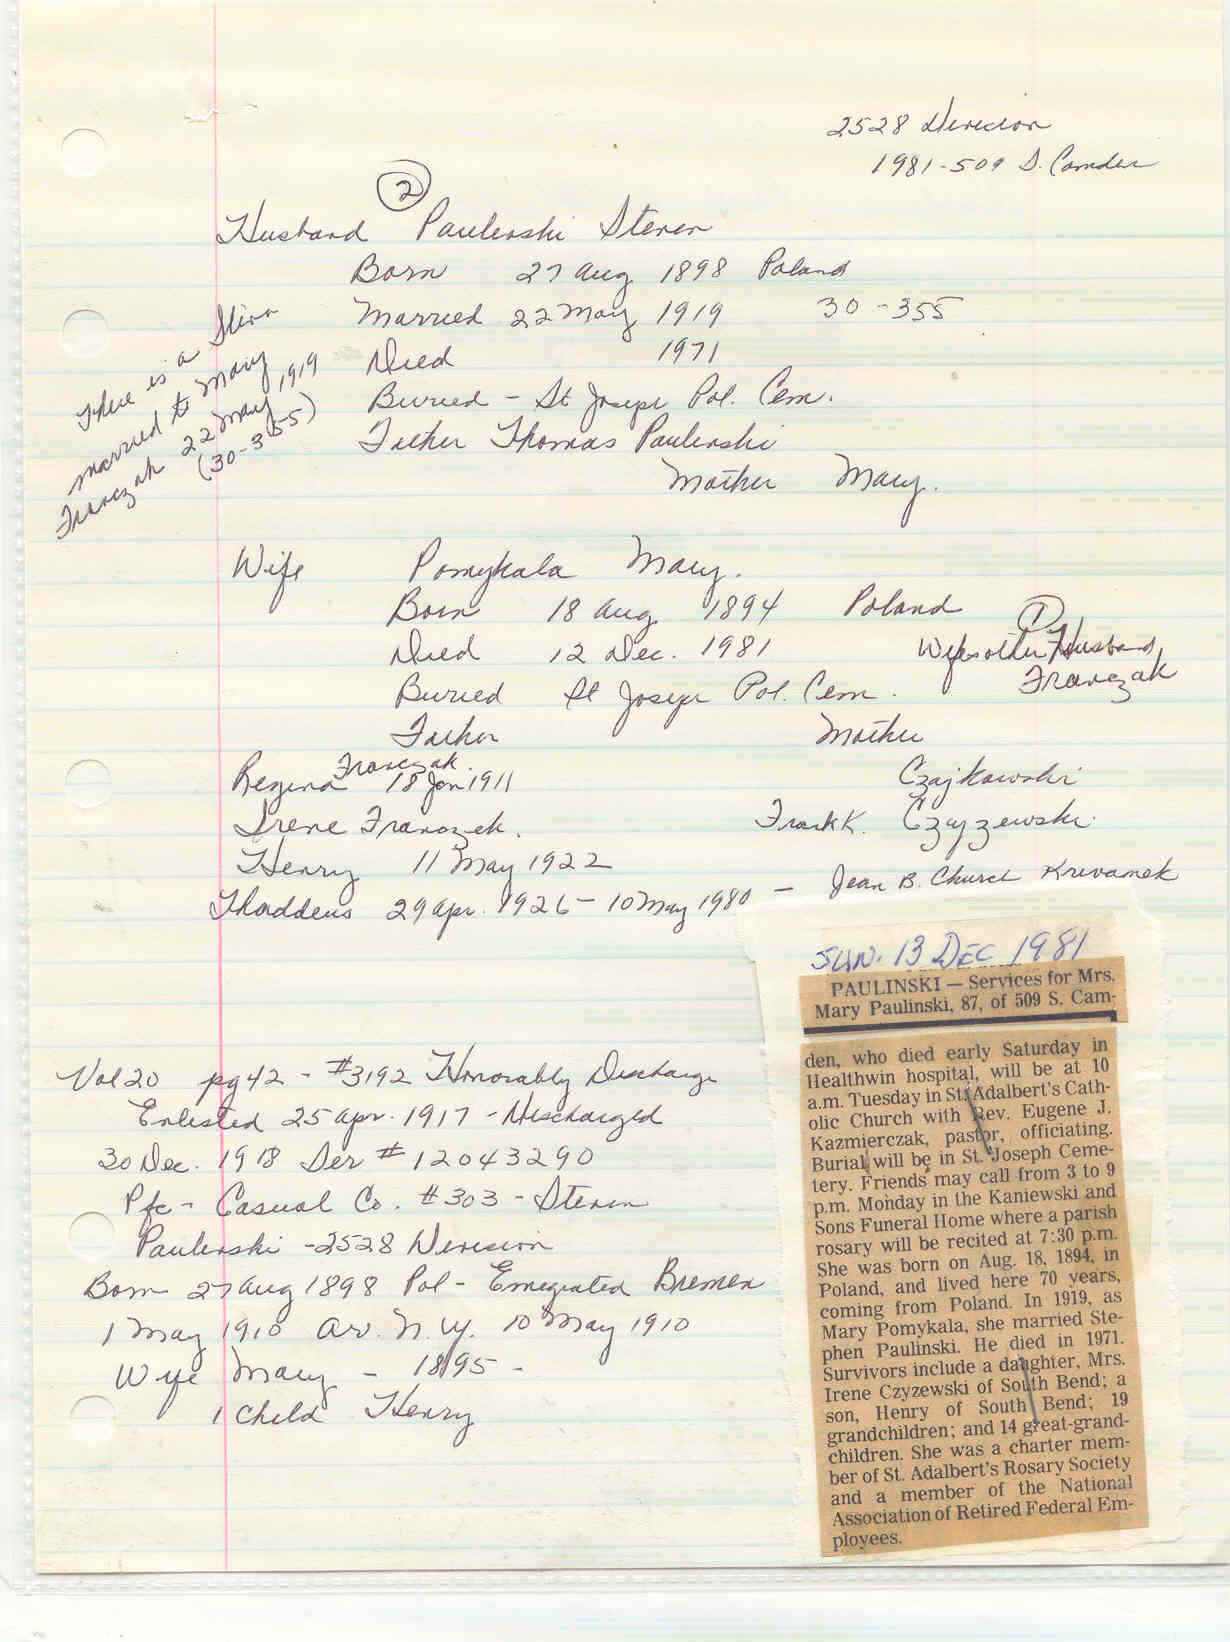 2528 Division
1981-509 S. Camden
2
Husband Paulinski Steven
Born 27 Aug 1898 Poland
Married 22 May 1919 30-355
Died 1971
Buried - St Joseph Pol. Cem.
Father Thomas Paulinski
Mother Mary.
There is a
married to Mary
Franczak 22 May 1919
(30-355)
Wife Pomykala Mary.
Born 18 Aug 1894 Poland
Died 12 Dec. 1981
Buried St Joseph Pol. Cem.
Father Mother
1
Wifes other Husband
Franczak
Franczak.
Regina 18 Jan 1911 Czajkowski
Irene Franczek. Frank K. Czyzewski.
Henry 11 May 1922
Thaddeus 29 Apr. 1926 - 10 May 1980 - Jean B. Church Krivanek
SUN. 13 DEC 1981
PAULINSKI — Services for Mrs.
Mary Paulinski, 87, of 509 S. Cam-
den, who died early Saturday in
Healthwin hospital, will be at 10
a.m. Tuesday in St. Adalbert's Cath-
olic Church with Rev. Eugene J.
Kazmierczak, pastor, officiating.
Burial will be in St. Joseph Ceme-
tery. Friends may call from 3 to 9
p.m. Monday in the Kaniewski and
Sons Funeral Home where a parish
rosary will be recited at 7:30 p.m.
She was born on Aug. 18, 1894, in
Poland, and lived here 70 years,
coming from Poland. In 1919, as
Mary Pomykala, she married Ste-
phen Paulinski. He died in 1971.
Survivors include a daughter, Mrs.
Irene Czyzewski of South Bend; a
son, Henry of South Bend; 19
grandchildren; and 14 great-grand-
children. She was a charter mem-
ber of St. Adalbert's Rosary Society
and a member of the National
Association of Retired Federal Em-
ployees.
Vol 20 pg 42 - #3192 Honorably Discharge
Enlisted 25 Apr. 1917 - Discharged
30 Dec. 1918 Ser # 12043290
Pfc - Casual Co. #303 - Steven
Paulinski - 2528 Division
Born 27 Aug 1898 Pol - Emegrated Bremen
1 May 1910 Ar. N.Y. 10 May 1910
Wife Mary - 1895 -
1 Child Henry